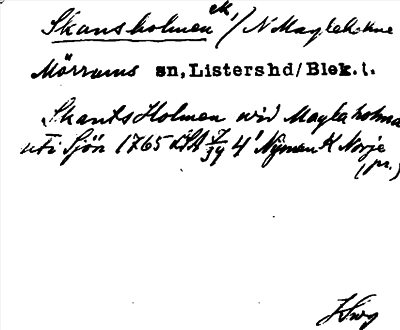 Skansholmen, / N Magleholme
Mörrums sn, Listershd/Blek.l.
Skants Holmen wid Maglaholma
uti Sjön 1765 LSA 7/34 4' Nymen K Norje
(pr.)